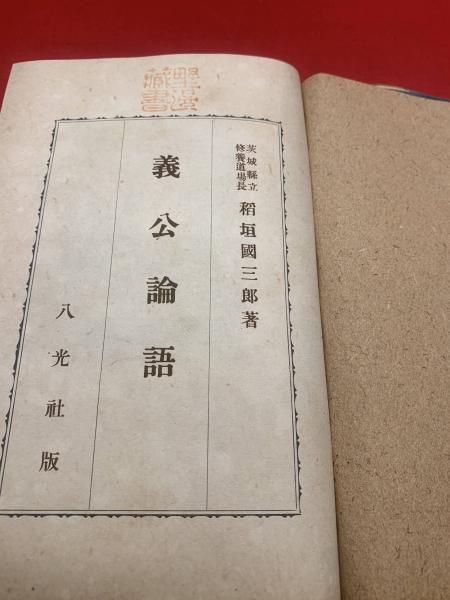 茨城縣立
修養道場長
稻垣國三郎著
義公論語
八光社版
藏書